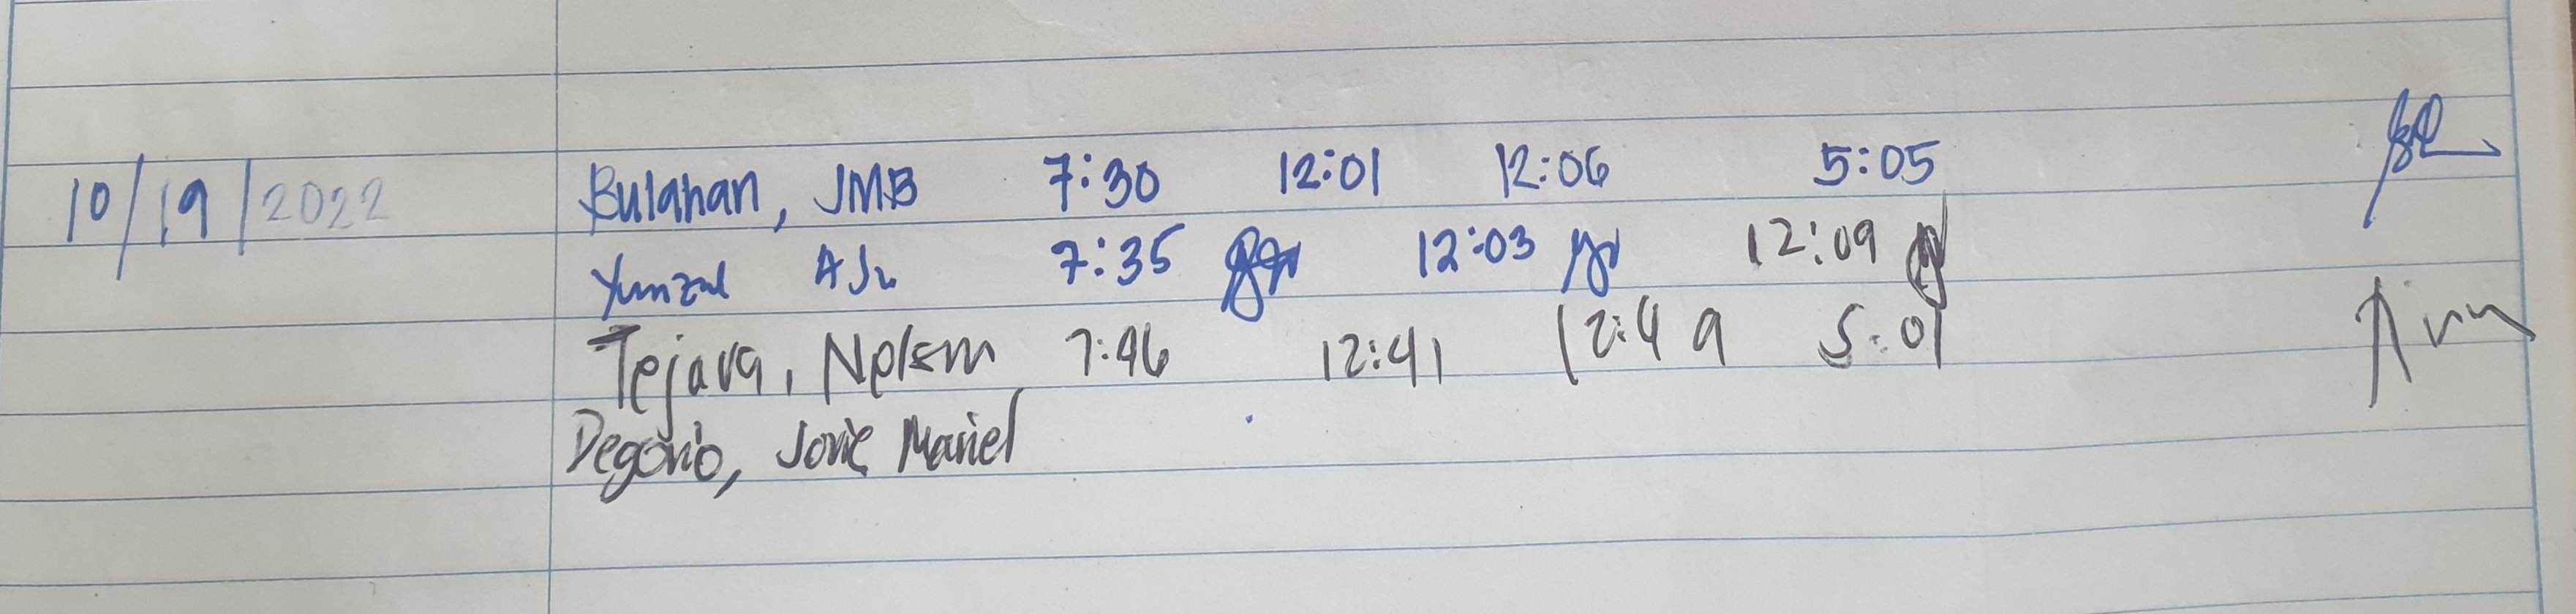 10/19/2022 Bulahan, JMB 7:30 12:01 12:06 5:05
Yunzal AJr 7:35 12:03 12:09
Tejava, Nelsm 7:46 12:41 12:49 5:01
Degorio, Jovie Mariel